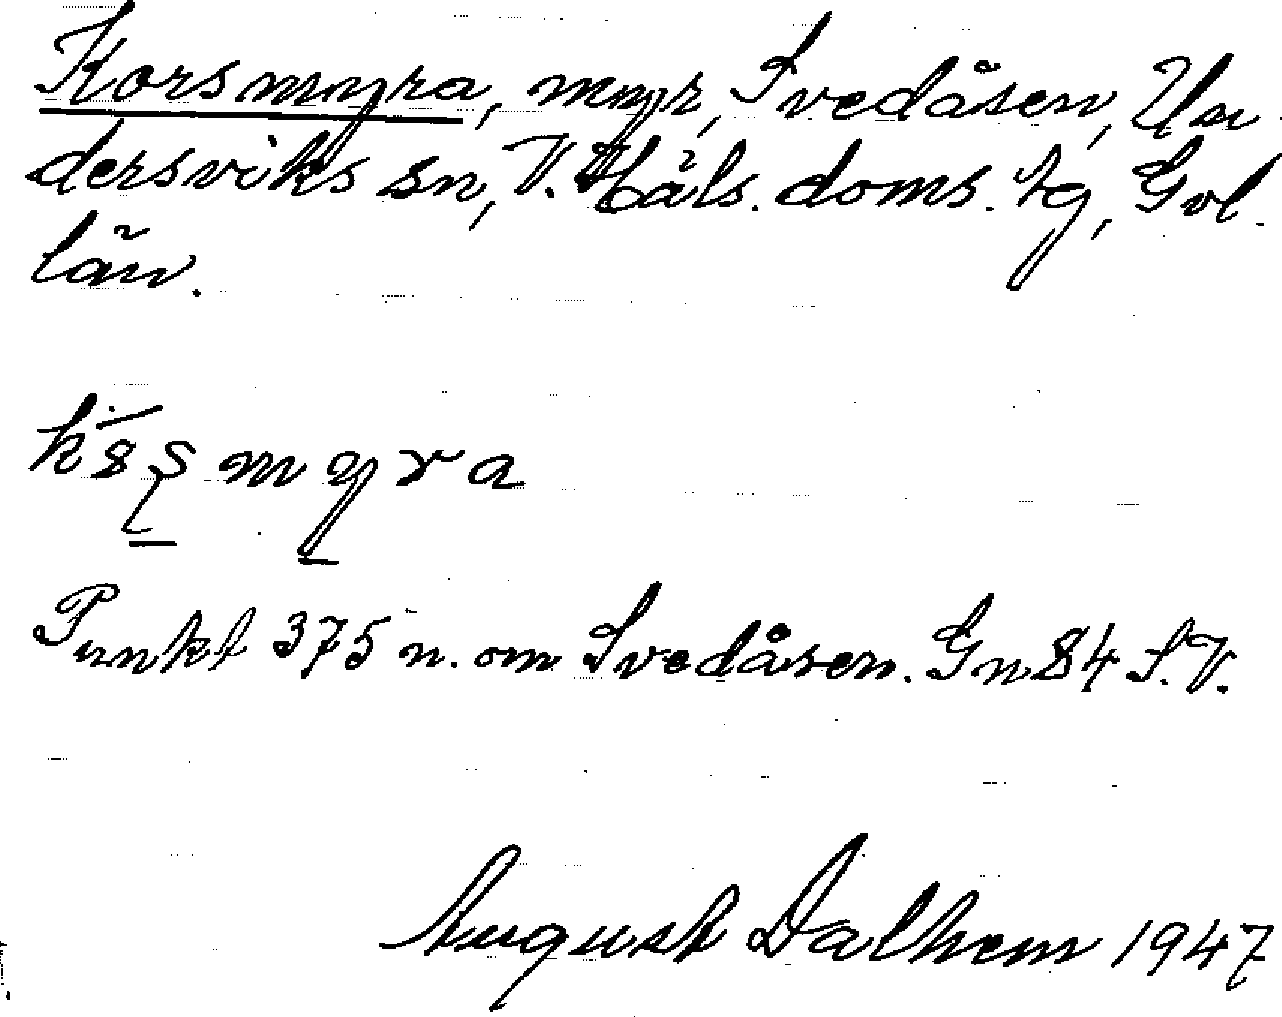 Korsmyra, myr, Svedåsen, Un-
dersviks sn, V. Häls. doms. tg, Gvl.
län.
m y r a
Punkt 375 n. om Svedåsen. Gn 84 S.V.
August Dalhem 1947